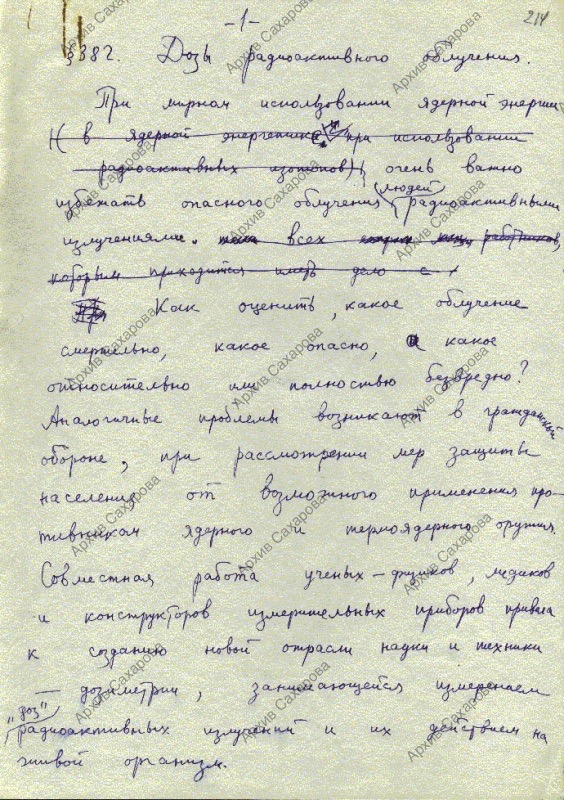 -1-
214
§382. Дозы радиоактивного облучения.
При мирном использовании ядерной энергии
(в ядерной энергетике и при использовании
радиоактивных изотопов) очень важно
избежать опасного облучения людей радиоактивными
излучениями. всех работников,
которым приходится иметь дело с
Как оценить, какое облучение
смертельно, какое опасно, а какое
относительно или полностью безвредно?
Аналогичные проблемы возникают в гражданской
обороне, при рассмотрении мер защиты
населения от возможного применения про-
тивником ядерного и термоядерного оружия.
Совместная работа ученых-физиков, медиков
и конструкторов измерительных приборов привела
к созданию новой отрасли науки и техники
— дозиметрии, занимающейся измерением
"доз" радиоактивных излучений и их действием на
живой организм.
Архив Сахарова